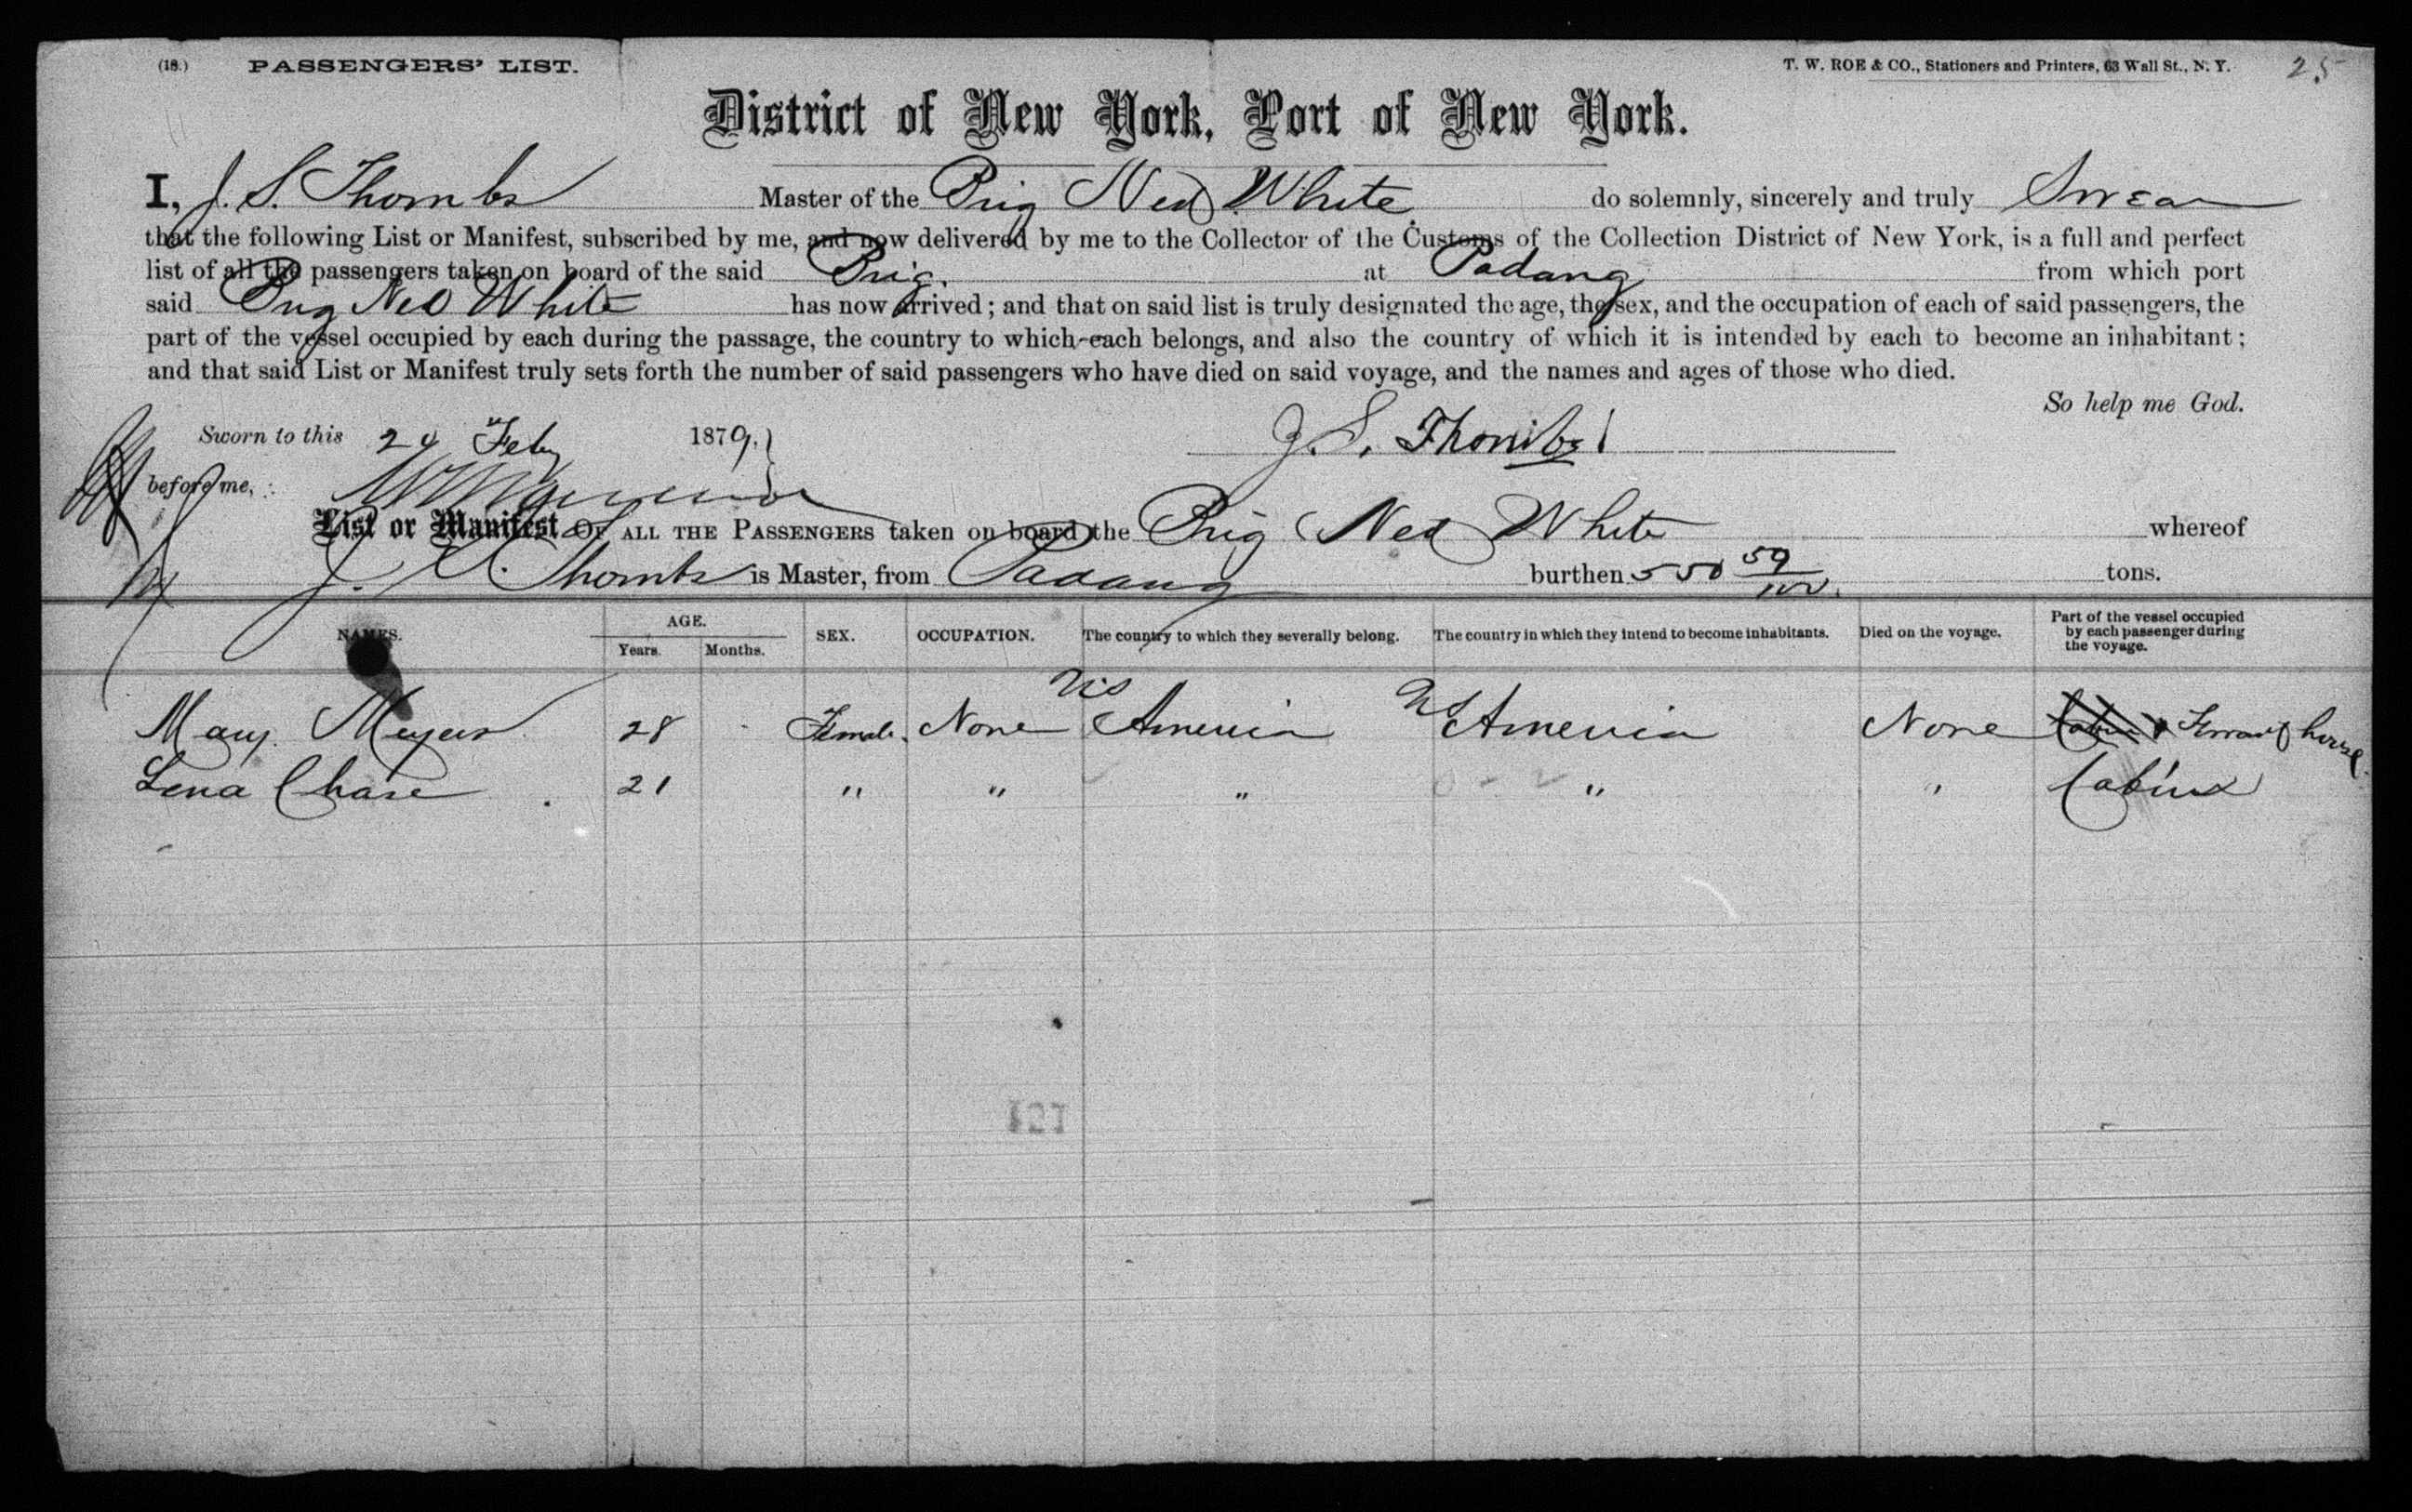 (18.) PASSENGERS' LIST. T. W. ROE & CO., Stationers and Printers, 63 Wall St., N. Y. 25
District of New York, Port of New York.
I, J. S. Thombs Master of the Brig Ned White do solemnly, sincerely and truly Swear
that the following List or Manifest, subscribed by me, and now delivered by me to the Collector of the Customs of the Collection District of New York, is a full and perfect
list of all the passengers taken on board of the said Brig. at Padang from which port
said Brig Ned White has now arrived; and that on said list is truly designated the age, the sex, and the occupation of each of said passengers, the
part of the vessel occupied by each during the passage, the country to which each belongs, and also the country of which it is intended by each to become an inhabitant;
and that said List or Manifest truly sets forth the number of said passengers who have died on said voyage, and the names and ages of those who died.
So help me God.
Sworn to this 24 Feby 1879. J. S. Thombs
before me,
List or Manifest OF ALL THE PASSENGERS taken on board the Brig Ned White whereof
J. S. Thombs is Master, from Padang burthen 550 59/100 tons.
NAMES. AGE. Years. Months. SEX. OCCUPATION. The country to which they severally belong. The country in which they intend to become inhabitants. Died on the voyage. Part of the vessel occupied by each passenger during the voyage.
Mary Meyers 28 Female. None US America US America None Forward house.
Lena Chase 21 " " " " " Cabin
121